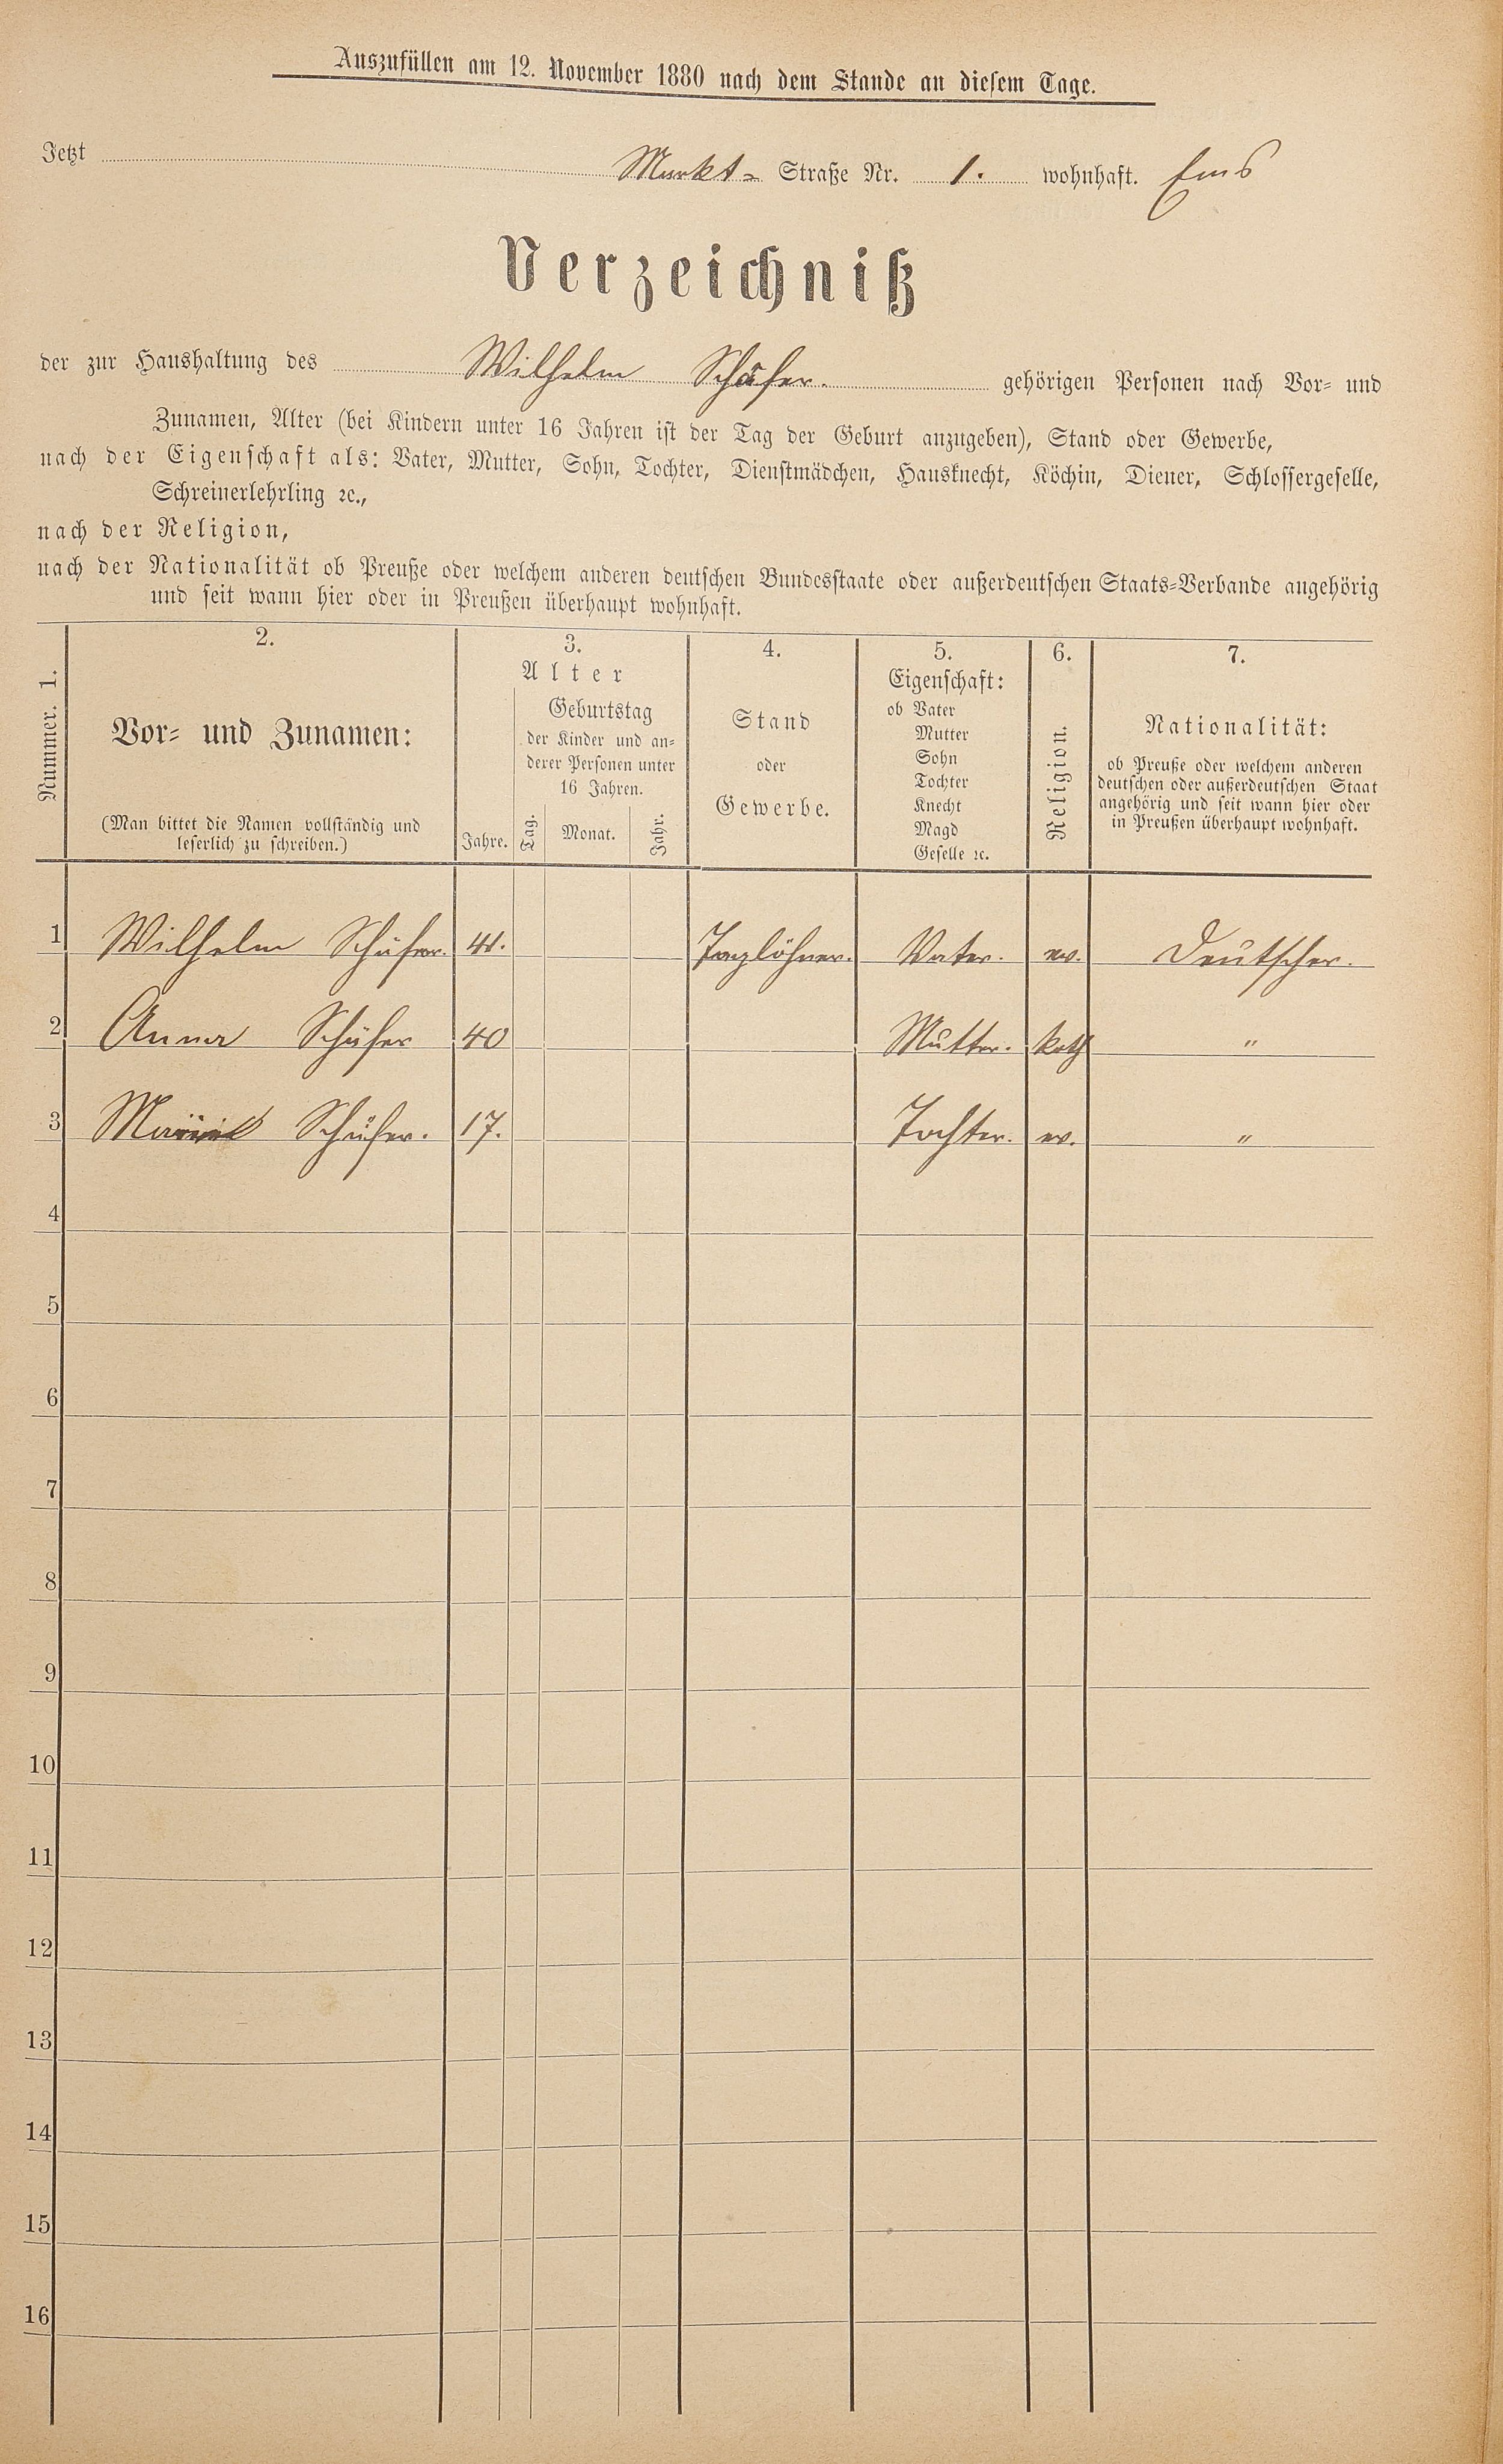 Auszufüllen am 12. November 1880 nach dem Stande an diesem Tage.
Jetzt Markt- Straße Nr. 1. wohnhaft. Ems
Verzeichniß
der zur Haushaltung des Wilhelm Schäfer. gehörigen Personen nach Vor- und
Zunamen, Alter (bei Kindern unter 16 Jahren ist der Tag der Geburt anzugeben), Stand oder Gewerbe,
nach der Eigenschaft als: Vater, Mutter, Sohn, Tochter, Dienstmädchen, Hausknecht, Köchin, Diener, Schlossergeselle,
Schreinerlehrling ꝛc.,
nach der Religion,
nach der Nationalität ob Preuße oder welchem anderen deutschen Bundesstaate oder außerdeutschen Staats-Verbande angehörig
und seit wann hier oder in Preußen überhaupt wohnhaft.
Nummer. 1.
2.
Vor- und Zunamen:
(Man bittet die Namen vollständig und
leserlich zu schreiben.)
3.
Alter
Jahre.
Geburtstag
der Kinder und an-
derer Personen unter
16 Jahren.
Tag. Monat. Jahr.
4.
Stand
oder
Gewerbe.
5.
Eigenschaft:
ob Vater
Mutter
Sohn
Tochter
Knecht
Magd
Geselle ꝛc.
6.
Religion.
7.
Nationalität:
ob Preuße oder welchem anderen
deutschen oder außerdeutschen Staat
angehörig und seit wann hier oder
in Preußen überhaupt wohnhaft.
1 Wilhelm Schäfer. Taglöhner. Vater. ev. Deutscher.
2 Anna Schäfer 40 Mutter. kath "
3 Schäfer. 17. Tochter. ev. "
4
5
6
7
8
9
10
11
12
13
14
15
16